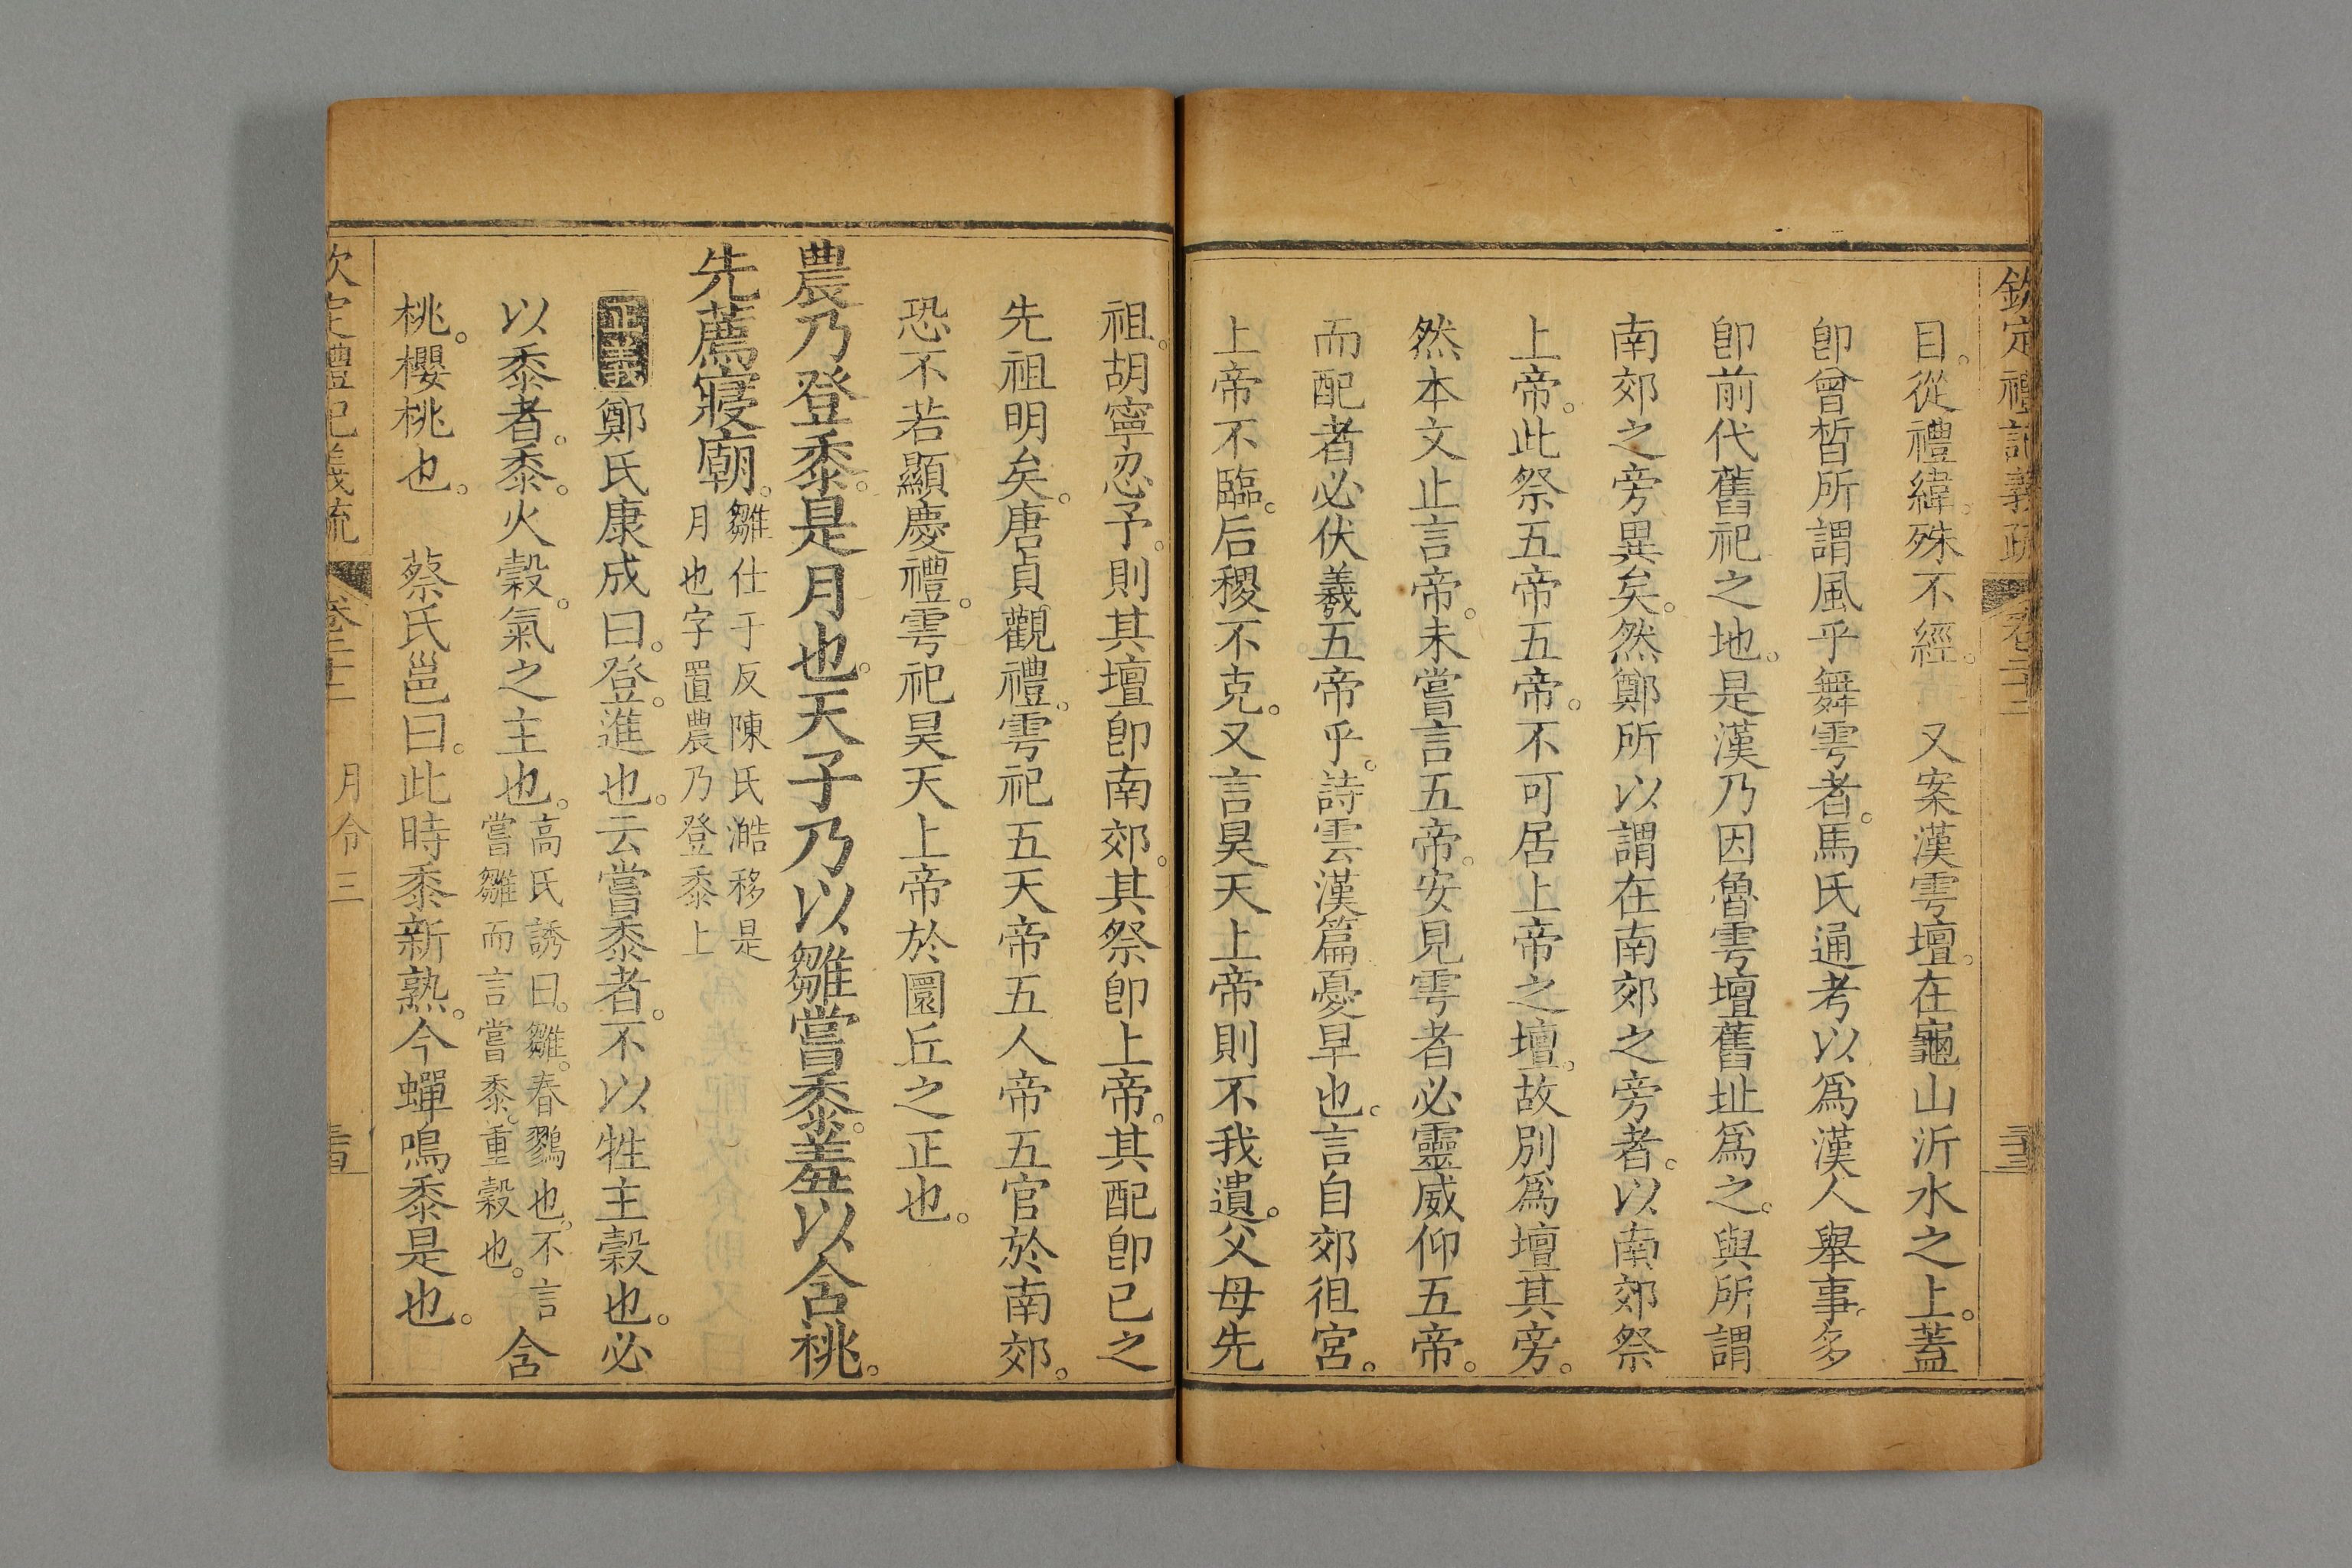 欽定禮記義疏 卷二十二
目。從禮緯。殊不經。 又案漢雩壇。在龜山沂水之上。蓋
卽曾晳所謂風乎舞雩者。馬氏通考以爲漢人舉事。多
卽前代舊祀之地。是漢乃因魯雩壇舊址爲之。與所謂
南郊之旁異矣。然鄭所以謂在南郊之旁者。以南郊祭
上帝。此祭五帝五帝。不可居上帝之壇。故別爲壇其旁。
然本文止言帝。未嘗言五帝。安見雩者必靈威仰五帝。
而配者必伏羲五帝乎。詩雲漢篇憂旱也。言自郊徂宮。
上帝不臨。后稷不克。又言昊天上帝則不我遺。父母先
祖。胡寧忍予。則其壇卽南郊。其祭卽上帝。其配卽已之
先祖明矣。唐貞觀禮。雩祀五天帝五人帝五官於南郊。
恐不若顯慶禮。雩祀昊天上帝於圜丘之正也。
農乃登黍。是月也。天子乃以雛嘗黍。羞以含桃。
先薦寢廟。雛仕于反陳氏澔移是
月也字置農乃登黍上
正義鄭氏康成曰。登。進也。云嘗黍者。不以牲主穀也。必
以黍者。黍。火穀。氣之主也。高氏誘曰。雛。春鷚也。不言
嘗雛而言嘗黍。重穀也。含
桃。櫻桃也。 蔡氏邕曰。此時黍新熟。今蟬鳴黍是也。
欽定禮記義疏 卷二十二 月令三